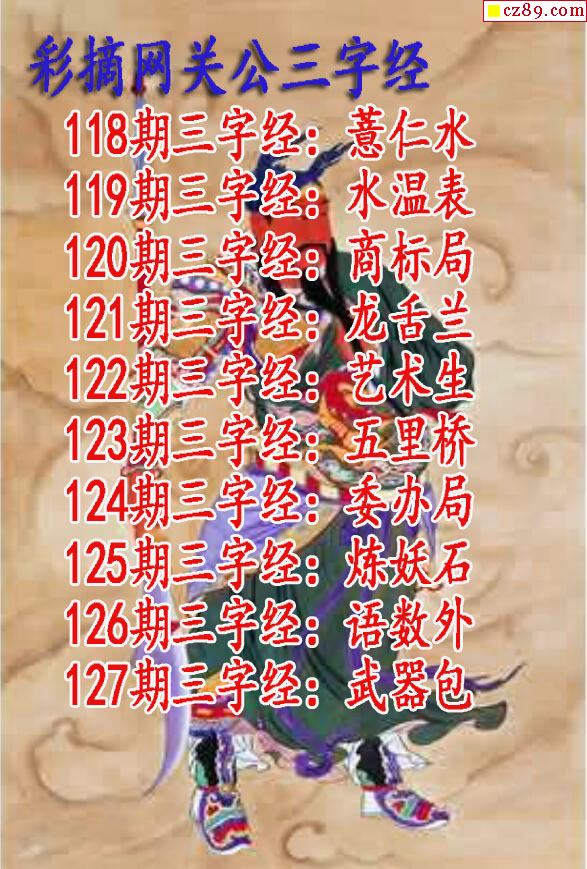 cz89.com
彩摘网关公三字经
118期三字经：薏仁水
119期三字经：水温表
120期三字经：商标局
121期三字经：龙舌兰
122期三字经：艺术生
123期三字经：五里桥
124期三字经：委办局
125期三字经：炼妖石
126期三字经：语数外
127期三字经：武器包